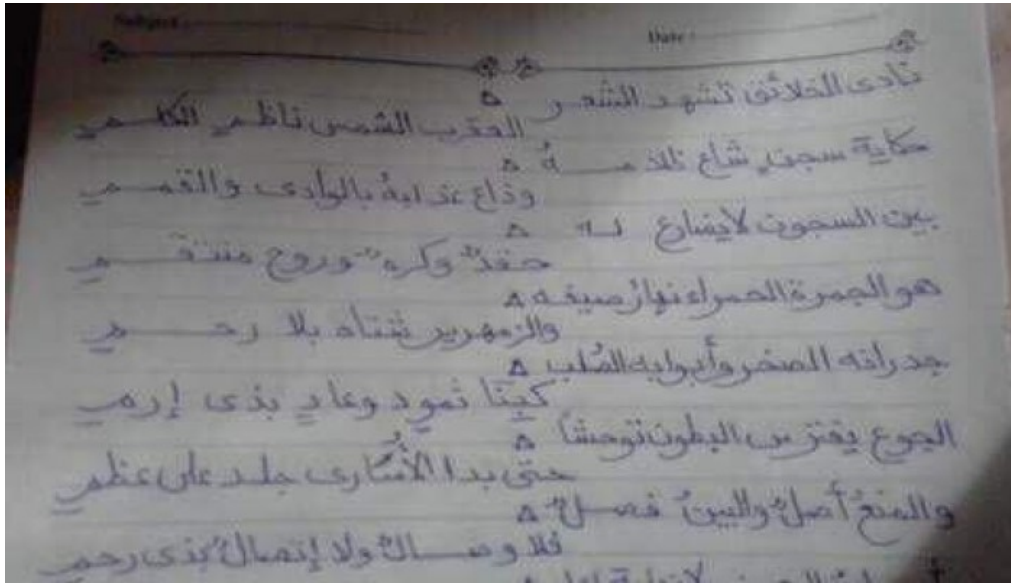 Subject :
Date :
نادى الخلائق تشهد الشعر
العذب الشمس ناظم الكلم
حكاية سجن شاع ظلمه
وذاع عذابه بالوادى والقمم
بين السجون لايضارع له
حقدٌ وكرهٌ وروح منتقم
هو الجمرة الحمراء نهار صيفه
والزمهرير شتاه بلا رحم
جدرانه الصخر وأبوابه الصُلب
كبيتا ثمود وعادٍ بذى إرم
الجوع يفترس البطون توحشاً
حتى بدا الأُسارى جلد على عظم
والمنعُ أصلٌ والبينُ فصلٌ
فلا وصالٌ ولا إتصالٌ بذى رحم